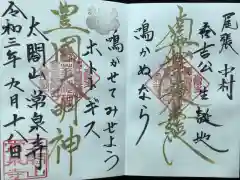 尾張 中村
秀吉公生誕地
鳴かぬなら
鳴かせてみせよう
ホトトギス
豊国大明神
太閤山 常泉寺
令和三年九月十八日